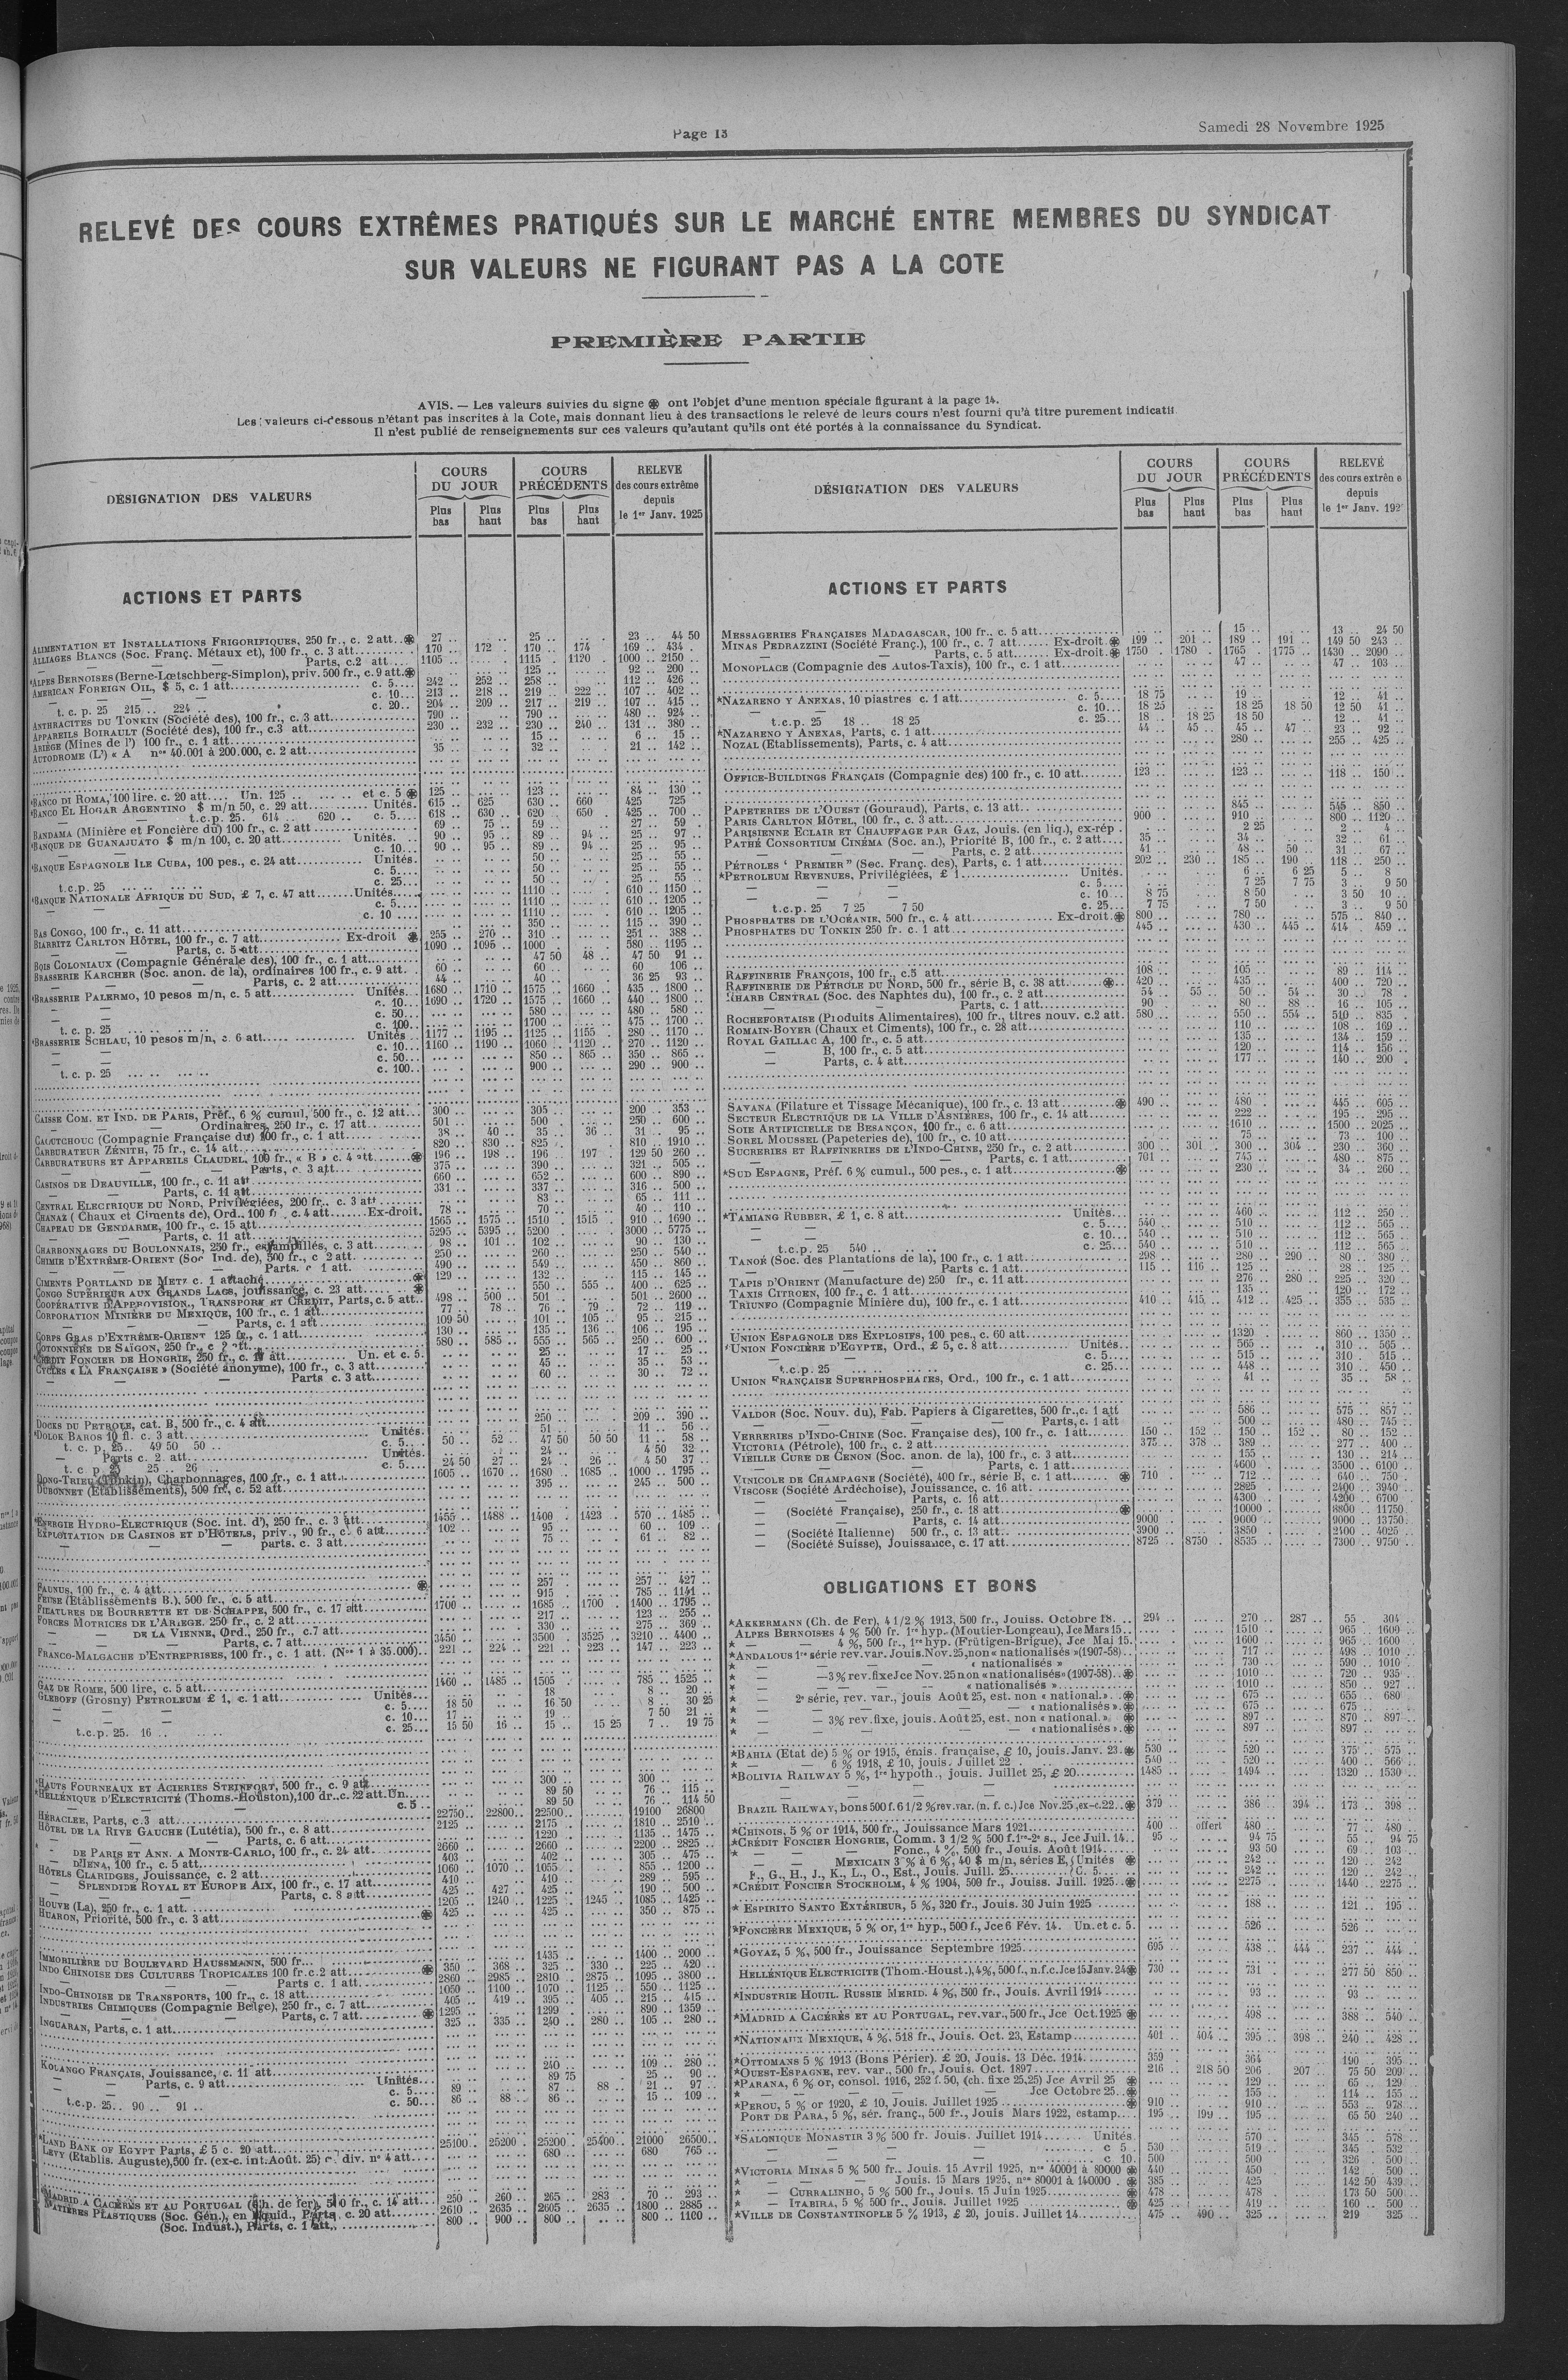 Page 13
Samedi 28 Novembre 1925
RELEVÉ DES COURS EXTRÊMES PRATIQUÉS SUR LE MARCHÉ ENTRE MEMBRES DU SYNDICAT
SUR VALEURS NE FIGURANT PAS A LA COTE
PREMIÈRE PARTIE
AVIS. — Les valeurs suivies du signe ❋ ont l'objet d'une mention spéciale figurant à la page 14.
Les valeurs ci-dessous n'étant pas inscrites à la Cote, mais donnant lieu à des transactions le relevé de leurs cours n'est fourni qu'à titre purement indicatif
Il n'est publié de renseignements sur ces valeurs qu'autant qu'ils ont été portés à la connaissance du Syndicat.
DÉSIGNATION DES VALEURS
COURS DU JOUR
COURS PRÉCÉDENTS
RELEVE des cours extrême depuis le 1er Janv. 1925
Plus bas
Plus haut
Plus bas
Plus haut
ACTIONS ET PARTS
ALIMENTATION ET INSTALLATIONS FRIGORIFIQUES, 250 fr., c. 2 att..❋ 27 .. 25 .. 23 .. 44 50
ALLIAGES BLANCS (Soc. Franç. Métaux et), 100 fr., c. 3 att. 170 .. 172 .. 170 .. 174 169 .. 434 .
— — Parts, c.2 att. 1105 .. 1115 .. 1120 .. 1000 .. 2150 ..
*ALPES BERNOISES (Berne-Lœtschberg-Simplon), priv. 500 fr., c. 9 att.❋ 125 .. 92 .. 200 ..
AMERICAN FOREIGN OIL, $ 5, c. 1 att. c. 5 242 .. 252 .. 258 .. 112 .. 426 ..
— — c. 10 213 .. 218 .. 219 .. 222 .. 107 .. 402 ..
t. c. p. 25 215 .. 224 .. c. 20 204 .. 209 .. 217 .. 219 .. 107 .. 415 ..
ANTHRACITES DU TONKIN (Société des), 100 fr., c. 3 att. 790 .. 790 .. 480 .. 924 ..
APPAREILS BOIRAULT (Société des), 100 fr., c.3 att. 230 .. 232 .. 230 .. 240 .. 131 .. 380 ..
ARIÈGE (Mines de l') 100 fr., c. 1 att. 15 .. 6 .. 15 ..
AUTODROME (L') « A nos 40.001 à 200.000, c. 2 att. 35 .. 32 .. 21 .. 142 ..
*BANCO DI ROMA, 100 lire. c. 20 att. Un. 125 .. et c. 5 ❋ 125 .. 123 .. 84 .. 130 ..
*BANCO EL HOGAR ARGENTINO $ m/n 50, c. 29 att. Unités. 615 .. 625 630 .. 660 425 725
— t.c.p. 25. 614 .. 620 .. c. 5 618 .. 630 .. 620 650 . 425 .. 700 ..
BANDAMA (Minière et Foncière du) 100 fr., c. 2 att 69 .. 75 .. 59 .. 27 .. 59 ..
*BANQUE DE GUANAJUATO $ m/n 100, c. 20 att. Unités. 90 .. 95 .. 89 .. 94 .. 25 .. 97 ..
c. 10 90 .. 95 .. 89 .. 94 .. 25 .. 95 ..
*BANQUE ESPAGNOLE ILE CUBA, 100 pes., c. 24 att. Unités. 50 .. 25 .. 55 ..
c. 5 50 .. 25 .. 55 ..
t.c.p. 25 c. 25 50 .. 25 .. 55 ..
*BANQUE NATIONALE AFRIQUE DU SUD, £ 7, c. 47 att. Unités 1110 .. 610 .. 1150 ..
c. 5 1110 .. 610 .. 1205 ..
c. 10 1110 .. 610 .. 1205 ..
BAS CONGO, 100 fr., c. 11 att. 350 .. 115 .. 390 ..
BIARRITZ CARLTON HÔTEL, 100 fr., c. 7 att. Ex-droit ❋ 255 .. 270 .. 310 .. 251 .. 388 ..
— Parts, c. 5 att. 1090 .. 1095 .. 1000 .. 580 .. 1195 ..
BOIS COLONIAUX (Compagnie Générale des), 100 fr., c. 1 att. 47 50 48 .. 47 50 91 ..
BRASSERIE KARCHER (Soc. anon. de la), ordinaires 100 fr., c. 9 att. 60 .. 60 .. 60 106 ..
— Parts, c. 2 att. 44 .. 40 .. 36 25 93 ..
*BRASSERIE PALERMO, 10 pesos m/n, c. 5 att. Unités 1680 .. 1710 .. 1575 .. 1660 .. 435 .. 1800 ..
c. 10 1690 .. 1720 .. 1575 .. 1660 .. 440 .. 1800 ..
c. 50 580 .. 480 .. 580 ..
t. c. p. 25 c. 100 1700 .. 475 .. 1700 ..
*BRASSERIE SCHLAU, 10 pesos m/n, c. 6 att. Unités 1177 .. 1195 .. 1125 .. 1155 .. 280 .. 1170 ..
c. 10 1160 .. 1190 .. 1060 .. 1120 .. 270 .. 1120 ..
c. 50 850 .. 865 .. 350 .. 865 ..
t. c. p. 25 c. 100 900 .. 290 .. 900 ..
CAISSE COM. ET IND. DE PARIS, Préf., 6 % cumul, 500 fr., c. 12 att. 300 .. 305 .. 200 .. 353 ..
— Ordinaires, 250 fr., c. 17 att. 501 .. 500 .. 250 .. 600 ..
CAOUTCHOUC (Compagnie Française du) 100 fr., c. 1 att. 38 .. 40 .. 35 .. 36 .. 31 .. 95 ..
CARBURATEUR ZÉNITH, 75 fr., c. 14 att. 820 .. 830 .. 825 .. 810 .. 1910 ..
CARBURATEURS ET APPAREILS CLAUDEL, 100 fr., « B » c. 4 att. ❋ 196 .. 198 .. 196 .. 197 .. 129 50 260 ..
— Parts, c. 3 att. 375 .. 390 .. 321 .. 505 ..
CASINOS DE DEAUVILLE, 100 fr., c. 11 att. 660 .. 652 .. 600 .. 890 ..
— Parts, c. 11 att. 331 .. 337 .. 316 .. 500 ..
CENTRAL ELECTRIQUE DU NORD, Privilégiées, 200 fr.. c. 3 att 83 .. 65 .. 111 ..
CHANAZ (Chaux et Ciments de), Ord., 100 fr., c. 4 att. Ex-droit. 78 .. 70 .. 40 .. 110 ..
CHAPEAU DE GENDARME, 100 fr., c. 15 att. 1565 .. 1575 .. 1510 .. 1515 .. 910 .. 1690 ..
— Parts, c. 11 att. 5295 .. 5395 .. 5200 .. 3000 .. 5775 ..
CHARBONNAGES DU BOULONNAIS, 250 fr., estampillés, c. 3 att. 98 .. 101 .. 102 .. 90 .. 130 ..
CHIMIE D'EXTRÊME-ORIENT (Soc Ind. de), 500 fr., c 2 att. 250 .. 260 .. 250 .. 540 ..
— Parts. c 1 att. 490 .. 549 .. 450 .. 860 ..
CIMENTS PORTLAND DE METZ c. 1 attaché ❋ 129 .. 132 .. 115 .. 145 ..
CONGO SUPÉRIEUR AUX GRANDS LACS, jouissance, c. 23 att. ❋ 550 .. 555 .. 400 .. 625 ..
COOPÉRATIVE D'APPROVISION., TRANSPORT ET CRÉDIT, Parts, c. 5 att. 498 .. 500 .. 501 .. 501 .. 2600 ..
CORPORATION MINIÈRE DU MEXIQUE, 100 fr., c. 1 att. 77 .. 78 .. 76 .. 79 .. 72 .. 119 ..
— Parts, c. 1 att. 109 50 101 .. 105 .. 95 .. 215 ..
CORPS GRAS D'EXTRÊME-ORIENT 125 fr., c. 1 att. 130 .. 135 .. 136 .. 106 .. 195 ..
COTONNIÈRE DE SAÏGON, 250 fr., c 2 att. 580 .. 585 .. 555 .. 565 .. 250 .. 600 ..
*CRÉDIT FONCIER DE HONGRIE, 250 fr., c. att. Un. et c. 5. 25 .. 17 .. 25 ..
CYCLES « LA FRANÇAISE » (Société anonyme), 100 fr., c. 3 att. 45 .. 35 .. 53 ..
— Parts c. 3 att. 60 .. 30 .. 72 ..
DOCKS DU PETROLE, cat. B, 500 fr., c. 4 att. 250 .. 209 .. 390 ..
*DOLOK BAROS 10 fl. c. 3 att. Unités. 51 .. 11 .. 56 ..
t. c. p. 25.. 49 50 50 .. c. 5 50 .. 52 .. 47 50 50 50 11 .. 58 ..
— Parts c. 2. att. Unités. 24 .. 4 50 32 ..
t. c p. 25 25 .. 26 .. c. 5 24 50 27 .. 24 .. 26 .. 4 50 37 ..
DONG-TRIEU (Tonkin), Charbonnages, 100 fr., c. 1 att. 1605 .. 1670 .. 1680 .. 1685 .. 1000 .. 1795 ..
DUBONNET (Etablissements), 500 fr., c. 52 att. 395 .. 245 .. 500 ..
*ENERGIE HYDRO-ÉLECTRIQUE (Soc. int. d'), 250 fr., c. 3 att. 1455 .. 1488 .. 1400 .. 1423 .. 570 .. 1485 ..
EXPLOITATION DE CASINOS ET D'HÔTELS, priv., 90 fr., c. 6 att. 102 .. 95 .. 60 .. 109 ..
— parts. c. 3 att. 75 .. 61 .. 82 ..
FAUNUS, 100 fr., c. 4 att. ❋ 257 .. 257 .. 427 ..
(Etablissements B.), 500 fr., c. 5 att. 915 .. 785 .. 1141 ..
FILATURES DE BOURRETTE ET DE SCHAPPE, 500 fr., c. 17 att. 1700 .. 1685 .. 1700 .. 1400 .. 1795 ..
FORCES MOTRICES DE L'ARIÈGE. 250 fr., c. 2 att. 217 .. 123 .. 255 ..
— DE LA VIENNE, Ord., 250 fr., c.7 att. 330 .. 275 .. 369 ..
— Parts, c. 7 att. 3450 .. 3500 .. 3525 .. 3210 .. 4400 ..
FRANCO-MALGACHE D'ENTREPRISES, 100 fr., c. 1 att. (Nos 1 à 35.000) 221 .. 224 .. 221 .. 223 .. 147 .. 223 ..
GAZ DE ROME, 500 lire, c. 5 att. 1460 .. 1485 .. 1505 .. 785 .. 1525 ..
GLEBOFF (Grosny) PETROLEUM £ 1, c. 1 att. Unités 18 .. 8 .. 20 ..
c. 5 18 50 16 50 8 .. 30 25
c. 10 17 .. 19 .. 7 50 21 ..
t.c.p. 25. 16 .. c. 25 15 50 16 .. 15 .. 15 25 7 .. 19 75
*HAUTS FOURNEAUX ET ACIERIES STEINFORT, 500 fr., c. 9 att. 300 .. 300 ..
*HELLÉNIQUE D'ELECTRICITÉ (Thoms.-Houston), 100 dr., c. 22 att. Un. 89 50 76 .. 115 ..
c. 5 89 50 76 .. 114 50
HÉRACLEE, Parts, c.3 att. 22750 .. 22800 .. 22500 .. 19100 26800
HÔTEL DE LA RIVE GAUCHE (Lutétia), 500 fr., c. 8 att. 2125 .. 2175 .. 1810 .. 2510 ..
— Parts, c. 6 att. 1220 .. 1135 .. 1475 ..
— DE PARIS ET ANN. A MONTE-CARLO, 100 fr., c. 24 att. 2660 .. 2660 .. 2200 .. 2825 ..
— D'IÉNA, 100 fr., c. 5 att. 403 .. 402 .. 305 .. 475 ..
HÔTELS CLARIDGES, Jouissance, c. 2 att. 1060 .. 1070 .. 1055 .. 855 .. 1200 ..
— SPLENDIDE ROYAL ET EUROPE AIX, 100 fr., c. 17 att. 410 .. 410 .. 289 .. 595 ..
— Parts, c. 8 att. 425 .. 427 .. 425 .. 190 .. 500 ..
HOUVE (La), 250 fr., c. 1 att. 1205 .. 1240 .. 1225 .. 1245 .. 1085 .. 1425 ..
HUARON, Priorité, 500 fr., c. 3 att. ❋ 425 .. 425 .. 350 .. 875 ..
IMMOBILIÈRE DU BOULEVARD HAUSSMANN, 500 fr. 1435 .. 1400 .. 2000 ..
INDO CHINOISE DES CULTURES TROPICALES 100 fr. c.2 att. ❋ 350 .. 368 .. 325 .. 330 .. 225 .. 420 ..
— Parts c. 1 att. 2860 .. 2985 .. 2810 .. 2875 .. 1095 .. 3800 ..
INDO-CHINOISE DE TRANSPORTS, 100 fr., c. 18 att. 1050 .. 1100 .. 1070 .. 1125 .. 550 .. 1125 ..
INDUSTRIES CHIMIQUES (Compagnie Belge), 250 fr., c. 7 att. 405 .. 419 .. 395 .. 405 .. 215 .. 415 ..
— Parts, c. 7 att. ❋ 1295 .. 1299 .. 890 .. 1359 ..
INGUARAN, Parts, c. 1 att. 325 .. 335 .. 240 .. 280 .. 105 .. 280 ..
KOLANGO FRANÇAIS, Jouissance, c. 11 att. 240 .. 109 .. 280 ..
— Parts, c. 9 att. Unités 89 75 25 .. 90 ..
c. 5 89 .. 87 .. 88 .. 21 .. 97 ..
t.c.p. 25.. 90 .. 91 .. c. 50 86 .. 88 .. 86 .. 15 .. 109 ..
*LAND BANK OF EGYPT Parts, £ 5 c. 20 att. 25100 .. 25200 .. 25200 .. 25400 .. 21000 26500 ..
LEVY (Etablis. Auguste), 500 fr. (ex-c. int. Août. 25) c. div. n° 4 att. 680 .. 680 765 ..
*MADRID A CACÉRÈS ET AU PORTUGAL (Ch. de fer), 500 fr., c. 14 att. 250 .. 260 .. 265 .. 283 70 .. 293 ..
MATIÈRES PLASTIQUES (Soc. Gén.), en liquid., Parts, c. 20 att. 2610 .. 2635 .. 2605 .. 2635 .. 1800 .. 2885 ..
(Soc. Indust.), Parts, c. 1 att. 800 .. 900 .. 800 .. 800 .. 1100 ..
DÉSIGNATION DES VALEURS
COURS DU JOUR
COURS PRÉCÉDENTS
RELEVÉ des cours extrême depuis le 1er Janv. 192
Plus bas
Plus haut
Plus bas
Plus haut
ACTIONS ET PARTS
MESSAGERIES FRANÇAISES MADAGASCAR, 100 fr., c. 5 att. 15 .. 13 .. 24 50
MINAS PEDRAZZINI (Société Franç.), 100 fr., c. 7 att. Ex-droit ❋ 199 .. 201 .. 189 .. 191 .. 149 50 243 ..
— Parts, c. 5 att. Ex-droit ❋ 1750 .. 1780 .. 1765 1775 .. 1430 .. 2090 ..
MONOPLACE (Compagnie des Autos-Taxis), 100 fr., c. 1 att. 47 .. 47 .. 103 ..
*NAZARENO Y ANEXAS, 10 piastres c. 1 att. c. 5 18 75 19 .. 12 .. 41 ..
c. 10 18 25 18 25 18 50 12 50 41 ..
t.c.p. 25 18 .. 18 25 c. 25 18 .. 18 25 18 50 12 .. 41 ..
*NAZARENO Y ANEXAS, Parts, c. 1 att. 44 .. 45 .. 45 .. 47 .. 23 .. 92 ..
NOZAL (Etablissements), Parts, c. 4 att. 280 .. 255 .. 425 ..
OFFICE-BUILDINGS FRANÇAIS (Compagnie des) 100 fr., c. 10 att. 123 .. 123 .. 118 .. 150 ..
PAPETERIES DE L'OUEST (Gouraud), Parts, c. 13 att. 845 .. 545 .. 850 ..
PARIS CARLTON HÔTEL, 100 fr., c. 3 att. 900 .. 910 .. 800 .. 1120 ..
PARISIENNE ECLAIR ET CHAUFFAGE PAR GAZ, Jouis. (en liq.), ex-rép . 2 25 2 .. 4 ..
PATHÉ CONSORTIUM CINÉMA (Soc. an.), Priorité B, 100 fr., c. 2 att. 35 .. 34 .. 32 .. 61 ..
— Parts, c. 2 att. 41 .. 48 .. 50 .. 31 .. 67 ..
PÉTROLES " PREMIER " (Soc. Franç. des), Parts, c. 1 att. 202 .. 230 .. 185 .. 190 .. 118 .. 250 ..
*PETROLEUM REVENUES, Privilégiées, £ 1 Unités. 6 .. 6 25 5 .. 8
c. 5 7 25 7 75 3 .. 9 50
c. 10 8 75 8 50 3 50 10 ..
t.c.p. 25 7 25 7 50 c. 25 7 75 7 50 3 .. 9 50
PHOSPHATES DE L'OCÉANIE, 500 fr., c. 4 att. Ex-droit. ❋ 800 .. 780 .. 575 .. 840 ..
PHOSPHATES DU TONKIN 250 fr. c. 1 att. 445 .. 430 .. 445 .. 414 .. 459 ..
RAFFINERIE FRANÇOIS, 100 fr., c.5 att. 108 .. 105 .. 89 .. 114 ..
RAFFINERIE DE PÉTROLE DU NORD, 500 fr., série B, c. 38 att. ❋ 420 .. 435 .. 400 .. 720 ..
RHARB CENTRAL (Soc. des Naphtes du), 100 fr., c. 2 att. 54 .. 55 .. 50 .. 54 .. 30 .. 78 ..
— Parts, c. 1 att. 90 .. 80 .. 88 .. 16 .. 105 ..
ROCHEFORTAISE (Produits Alimentaires), 100 fr., titres nouv. c.2 att. 580 .. 550 .. 554 .. 510 .. 835 ..
ROMAIN-BOYER (Chaux et Ciments), 100 fr., c. 28 att. 110 .. 108 .. 169 ..
ROYAL GAILLAC A, 100 fr., c. 5 att. 135 .. 134 .. 159 ..
— B, 100 fr., c. 5 att. 120 .. 114 .. 156 ..
— Parts, c. 4 att. 177 .. 140 .. 200 .
SAVANA (Filature et Tissage Mécanique), 100 fr., c. 13 att. ❋ 490 .. 480 .. 445 .. 605 ..
SECTEUR ELECTRIQUE DE LA VILLE D'ASNIÈRES, 100 fr., c. 14 att. 222 .. 195 .. 295 ..
SOIE ARTIFICIELLE DE BESANÇON, 100 fr., c. 6 att. 1610 .. 1500 .. 2025 ..
SOREL MOUSSEL (Papeteries de), 100 fr., c. 10 att. 75 .. 73 .. 100 ..
SUCRERIES ET RAFFINERIES DE L'INDO-CHINE, 250 fr., c. 2 att. 300 .. 301 .. 300 .. 304 .. 230 .. 360 ..
— Parts, c. 1 att. 701 .. 745 .. 480 .. 875 ..
*SUD ESPAGNE, Préf. 6 % cumul., 500 pes., c. 1 att. ❋ 230 .. 34 .. 260 ..
*TAMIANG RUBBER, £ 1, c. 8 att. Unités. 460 .. 112 .. 250 ..
c. 5 540 .. 510 .. 112 .. 565 ..
c. 10 540 .. 510 .. 112 .. 565 ..
t.c.p. 25 540 .. c. 25 540 .. 510 .. 112 .. 565 ..
TANOÉ (Soc. des Plantations de la), 100 fr., c. 1 att. 298 .. 280 .. 290 .. 80 .. 380 ..
— Parts c. 1 att. 115 .. 116 .. 125 .. 28 .. 125 ..
TAPIS D'ORIENT (Manufacture de) 250 fr., c. 11 att. 276 .. 280 .. 225 .. 320 ..
TAXIS CITROEN, 100 fr., c. 1 att. 135 .. 120 .. 172 ..
TRIUNFO (Compagnie Minière du), 100 fr., c. 1 att. 410 .. 415 .. 412 .. 425 .. 355 .. 535 ..
UNION ESPAGNOLE DES EXPLOSIFS, 100 pes., c. 60 att. 1320 .. 860 .. 1350 ..
*UNION FONCIÈRE D'EGYPTE, Ord., £ 5, c. 8 att. Unités 565 .. 310 .. 565 ..
c. 5 515 .. 310 .. 515 ..
t.c.p. 25 c. 25 448 .. 310 .. 450 ..
UNION FRANÇAISE SUPERPHOSPHATES, Ord., 100 fr., c. 1 att. 41 .. 35 .. 58 ..
VALDOR (Soc. Nouv. du), Fab. Papiers à Cigarettes, 500 fr., c. 1 att 586 .. 575 .. 857 ..
— Parts, c. 1 att 500 .. 480 .. 745 ..
VERRERIES D'INDO-CHINE (Soc. Française des), 100 fr., c. 1 att. 150 .. 152 .. 150 .. 152 .. 80 .. 152 ..
VICTORIA (Pétrole), 100 fr., c. 2 att. 375 .. 378 .. 389 .. 277 .. 400 ..
VIEILLE CURE DE CENON (Soc. anon. de la), 100 fr., c. 3 att. 155 .. 130 .. 214 ..
— Parts, c. 1 att. 4600 .. 3500 .. 6100 ..
VINICOLE DE CHAMPAGNE (Société), 400 fr., série B, c. 1 att. ❋ 710 .. 712 .. 640 .. 750 ..
VISCOSE (Société Ardéchoise), Jouissance, c. 16 att. 2825 .. 2400 .. 3940 ..
— Parts, c. 16 att. 4300 .. 4200 6700 ..
— (Société Française), 250 fr., c. 18 att. ❋ 10000 .. 8800 .. 11750 ..
— Parts, c. 14 att. 9000 .. 9000 .. 9000 .. 13750 ..
— (Société Italienne) 500 fr., c. 13 att. 3900 .. 3850 .. 2400 .. 4025 ..
— (Société Suisse), Jouissance, c. 17 att. 8725 .. 8750 .. 8535 .. 7300 .. 9750 ..
OBLIGATIONS ET BONS
*AKKERMANN (Ch. de Fer), 4 1/2 % 1913, 500 fr., Jouiss. Octobre 18. 294 .. 270 .. 287 .. 55 304 ..
ALPES BERNOISES 4 % 500 fr. 1re hyp. (Moutier-Longeau), Jce Mars 15 1510 .. 965 .. 1600 ..
* — 4 %, 500 fr., 1re hyp. (Frütigen-Brigue), Jce Mai 15. 1600 .. 965 .. 1600
*ANDALOUS 1re série rev. var. Jouis. Nov. 25, non « nationalisés » (1907-58) 717 .. 498 .. 1010
* — « nationalisés » 730 .. 590 .. 1010 ..
* — 3 % rev. fixe Jce Nov. 25 non « nationalisés » (1907-58) ❋ 1010 .. 720 .. 935 ..
* — « nationalisés » 1010 .. 850 .. 927 ..
* — 2e série, rev. var., jouis Août 25, est. non « national. ». ❋ 675 .. 655 .. 680
* — « nationalisés ». ❋ 675 .. 675 ..
* — 3% rev. fixe, jouis. Août 25, est. non « national. ». ❋ 897 .. 870 .. 897 ..
* — « nationalisés ». ❋ 897 .. 897 ..
*BAHIA (Etat de) 5 % or 1915, émis. française, £ 10, jouis. Janv. 23. ❋ 530 .. 520 .. 375 .. 575 ..
* — 6 % 1918, £ 10, jouis. Juillet 22 540 .. 520 .. 400 .. 566 ..
*BOLIVIA RAILWAY 5 %, 1re hypoth., jouis. Juillet 25, £ 20 1485 .. 1494 .. 1320 .. 1530 ..
BRAZIL RAILWAY, bons 500 f. 6 1/2 % rev. var. (n. f. c.) Jce Nov. 25, ex-c. 22 ❋ 379 .. 386 .. 394 .. 173 .. 398 ..
*CHINOIS, 5 % or 1914, 500 fr., Jouissance Mars 1921 400 .. offert 480 .. 77 .. 480 ..
*CRÉDIT FONCIER HONGRIE, Comm. 3 1/2 % 500 f. 1re-2e s., Jce Juil. 14 95 .. 94 75 55 .. 94 75
* — Fonc., 4 %, 500 fr., Jouis. Août 1914 93 50 69 .. 103 ..
— MEXICAIN 3 % à 6 %, 40 $ m/n, séries E, Unités ❋ 242 .. 120 .. 242 ..
F., G., H., J., K., L., O., Est., Jouis. Juill. 25 C. 5 242 .. 120 .. 242 ..
*CRÉDIT FONCIER STOCKHOLM, 4 % 1904, 500 fr., Jouiss. Juill. 1925 ❋ 2275 .. 1440 .. 2275 ..
* ESPIRITO SANTO EXTÉRIEUR, 5 %, 320 fr., Jouis. 30 Juin 1925 188 .. 121 .. 195 ..
*FONCIÈRE MEXIQUE, 5 % or, 1re hyp., 500 f., Jce 6 Fév. 14. Un. et c. 5. 526 .. 526 ..
*GOYAZ, 5 %, 500 fr., Jouissance Septembre 1925 695 .. 438 .. 444 .. 237 .. 444 ..
HELLÉNIQUE ELECTRICITE (Thom.-Houst.), 4%, 500 f., n.f.c. Jce 15 Janv. 24 ❋ 730 .. 731 .. 277 50 850 ..
*INDUSTRIE HOUIL. RUSSIE MERID. 4 %, 500 fr., Jouis. Avril 1914 93 .. 93 ..
*MADRID A CACÉRÈS ET AU PORTUGAL, rev. var., 500 fr., Jce Oct. 1925 ❋ 498 .. 388 .. 540 ..
*NATIONAUX MEXIQUE, 4 %, 518 fr., Jouis. Oct. 23, Estamp 401 .. 404 .. 395 .. 398 .. 240 .. 428 ..
*OTTOMANS 5 % 1913 (Bons Périer). £ 20, Jouis. 13 Déc. 1914 359 .. 364 190 .. 395 ..
*OUEST-ESPAGNE, rev. var., 500 fr., Jouis. Oct. 1897 216 .. 218 50 206 207 .. 75 50 209 ..
*PARANA, 6 % or, consol. 1916, 252 f. 50, (ch. fixe 25,25) Jce Avril 25 ❋ 129 .. 65 .. 129 ..
* — Jce Octobre 25 ❋ 155 .. 114 .. 155 ..
*PEROU, 5 % or 1920, £ 10, Jouis. Juillet 1925 ❋ 910 .. 910 .. 553 .. 978 ..
PORT DE PARA, 5 %, sér. franç., 500 fr., Jouis Mars 1922, estamp. 195 .. 199 .. 195 .. 65 50 240 ..
*SALONIQUE MONASTIR 3 % 500 fr. Jouis. Juillet 1914 Unités. 570 .. 345 .. 578 ..
c 5 530 .. 519 .. 345 .. 532 ..
c 10. 500 .. 500 .. 326 .. 500 ..
*VICTORIA MINAS 5 % 500 fr.. Jouis. 15 Avril 1925, nos 40001 à 80000 ❋ 440 .. 450 .. 142 .. 500 ..
* — Jouis. 15 Mars 1925, nos 80001 à 140000 . ❋ 385 .. 425 .. 142 50 439 ..
* — CURRALINHO, 5 % 500 fr., Jouis. 15 Juin 1925 ❋ 478 .. 478 .. 173 50 500 ..
* — ITABIRA, 5 % 500 fr., Jouis. Juillet 1925 ❋ 425 .. 419 .. 160 .. 500 ..
*VILLE DE CONSTANTINOPLE 5 % 1913, £ 20, jouis. Juillet 14 475 .. 490 .. 325 .. 219 325 ..